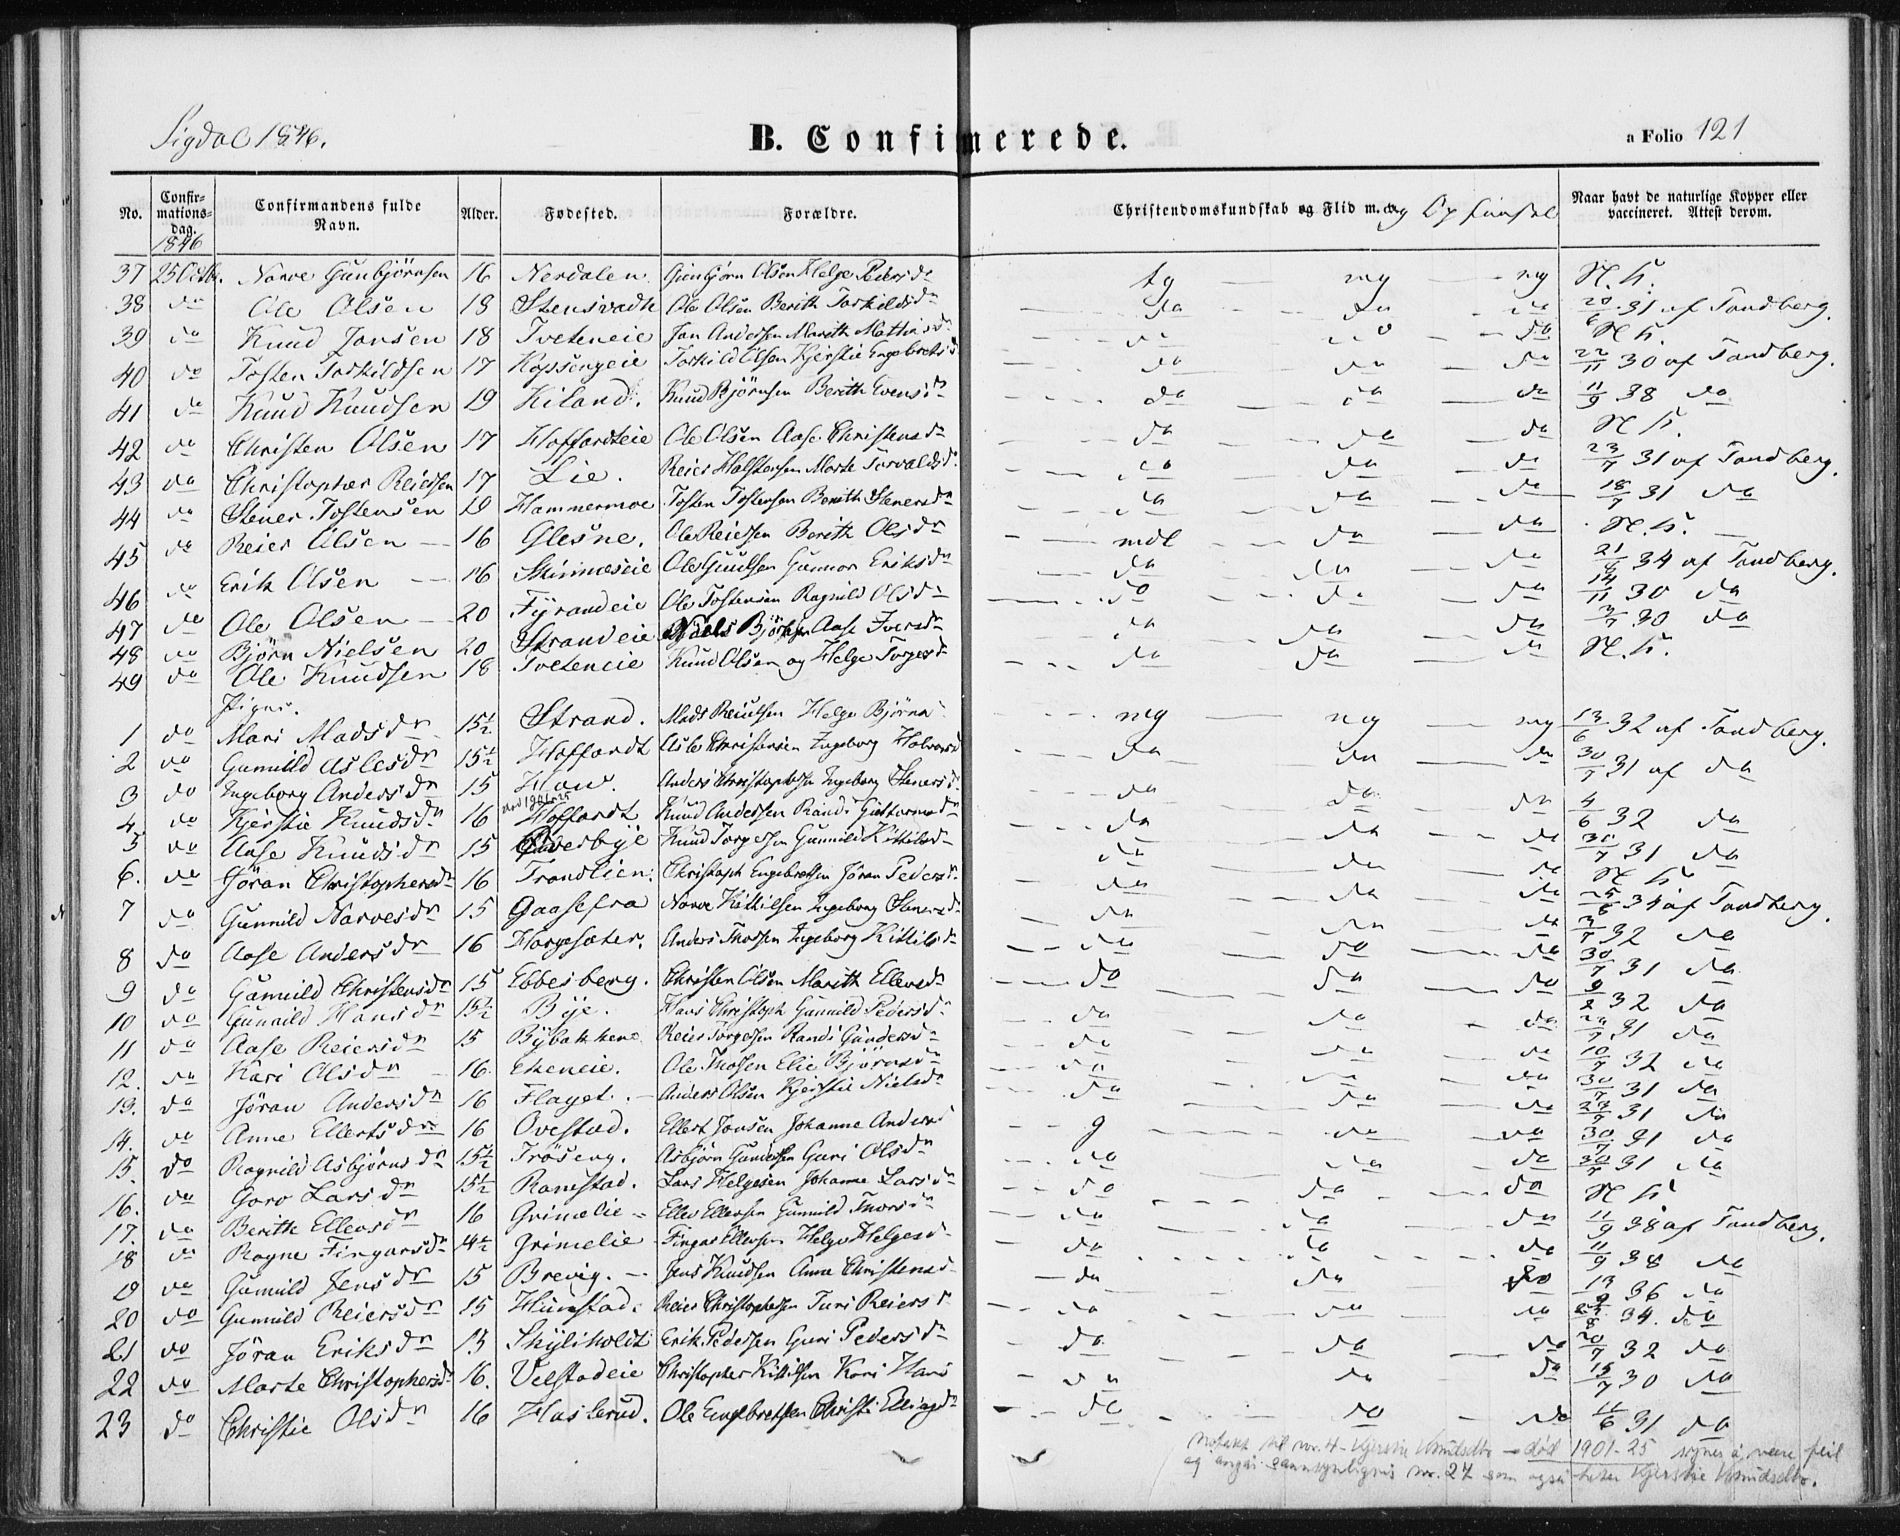 Sigdal 1846.
B. Confirmerede.
a Folio 121
No. Confirmations-dag. Confirmandens fulde Navn. Alder. Fødested. Forældre. Christendomskundskab og Flid m. v. og Opførsel Naar havt de naturlige Kopper eller vaccineret. Attest derom.
1846
37 25 Octb. Narve Gunbjørnsen 16 Nerdalen Gunbjørn Olsen Helge Pedersdr tg mg mg N. K.
38 do Ole Olsen 18 Stensvadte Ole Olsen Berith Torkildsdr do do do 20/6 31 af Tandberg.
39 do Knud Jonsen 18 Tveteneie Jon Andersen Marith Mathisdr do do do N. K.
40 do Tosten Torkildsen 17 Kopsengeie Torkild Olsen Kjerstie Engebretsd do do do 22/11 30 af Tandberg.
41 do Knud Knudsen 19 Kiland. Knud Bjørnsen Berith Evensdr do do do 11/9 38 do
42 do Christen Olsen 17 Hoffardteie Ole Olsen Aase Christensdr do do do N. K.
43 do Christopher Reiersen 17 Lie. Reier Halstensen Marte Torvaldsd. do do do 23/7 31 af Tandberg.
44 do Stener Tostensen 19 Hammermoe Tosten Tostensen Berith Stenersdr do do do 18/7 31 do
45 do Reier Olsen 16 Glesne. Ole Reiersen Berith Olsdr mdl do do N. K.
46 do Erik Olsen 16 Skinnæseie Ole Gulsen Gunnor Eriksdr do do do 21/6 34 af Tandberg.
47 do Ole Olsen 20 Fyrandeie Ole Tostensen Ragnild Olsdr do do do 14/11 30 do
48 do Bjørn Nielsen 20 Strandeie Niels Bjørnsen Aase Iversdr do do do 3/7 30 do
49 do Ole Knudsen 18 Tveteneie Knud Olsen og Helge Torgersdr do do do N. K.
Piger.
1 do Mari Madsdr 15½ Strand. Mads Reiersen Helge Bjørnsd mg mg mg 13/6 32 af Tandberg.
2 do Gunnild Aslesdr 15½ Hoffardt Asle Christensen Ingeborg Halvorsd do do do 30/7 31 af do
3 do Ingeborg Andersdr 15 Hou. Anders Christophersen Ingeborg Stenersdr do do do 4/6 32 do
4 do Kjerstie Knudsdr 16 død 1901-25 Hoffardt Knud Andersen Randi Guttormsdr do do do 31/7 31 do
5 do Aase Knudsdr 15 Overbye Knud Torgersen Gunnild Kittilsdr do do do N. K.
6. do Jøran Christophersdr 16 Trondlien. Christoph Engebretsen Jøran Pedersdr do do do 25/6 34 af Tandberg.
7 do Gunnild Narvesdr 15 Gaasefra Narve Kittilsen Ingeborg Stenersdr do do do 3/7 32 do
8 do Aase Andersdr 16 Horgesæter. Anders Thorsen Ingeborg Kittilsdr do do do 30/7 31 do
9 do Gunnild Christensdr 15 Ebbesberg. Christen Olsen Marith Ellersdr do do do 9/2 32 do
10 do Gunnild Hansdr 15½ Bye. Hans Christoph Gunnild Pedersdr do do do 31 do
11 do Aase Reiersdr 15 Bybakkene Reier Torgersen Randi Gundersdr do do do 10/7 32 do
12. do Kari Olsdr 16. Ekeneie. Ole Thorsen Elie Bjørnsdr do do do 30/7 31 do
13. do Jøran Andersdr 16 Flaget. Anders Olsen Kjerstie Nielsdr do do do 23/7 31 do
14. do Anne Ellertsdr 16 Ovestad. Ellert Jonsen Johanne Andersd g do do 30/7 31 do
15. do Ragnild Asbjørnsdr 15½ Frøseng. Asbjørn Gundersen Guri Olsdr do do do 30/7 31 do
16. do Goro Larsdr 15½ Ramstad. Lars Helgesen Johanne Larsdr do do do N. K.
17. do Berith Ellersdr 16 Grimelie Eller Ellersen Gunnild Thorsdr do do do 11/9 38 af Tandberg.
18 do Ragne Fingarsdr 14½ Grimelie Fingar Ellersen Helge Helgesd do do do 11/9 38 do
19 do Gunnild Jensdr 15 Brevig. Jens Knudsen Anne Christensd do do do 13/9 36 do
20 do Gunnild Reiersdr 15 Hunstad. Reier Christophersen Turi Reiersdr do do do 34. do
21 do Jøran Eriksdr 15 Skyliholdt Erik Pedersen Guri Pedersdr do do do 20/7 32 do
22 do Marte Christophersdr 16. Velstadeie Christopher Kittilsen Kari Hans do do do 15/7 30 do
23 do Christie Olsdr 16 Haslerud. Ole Engebretsen Christi Ellingdr do do do 11/6 31 do
Notatet til nr. 4 - Kjerstie Knudsdtr - død 1901-25 synes å være feil
og angår sannsynligvis nr. 27 som også heter Kjerstie Knudsdtr.